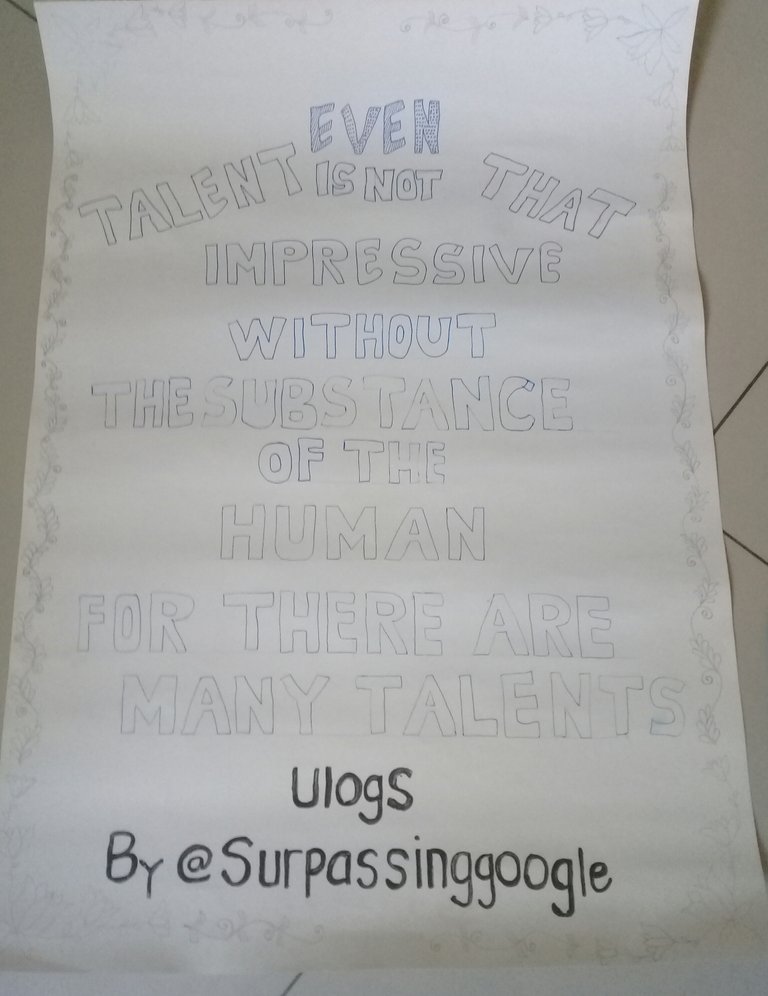 EVEN
TALENT IS NOT THAT
IMPRESSIVE
WITHOUT
THE SUBSTANCE
OF THE
HUMAN
FOR THERE ARE
MANY TALENTS
Ulogs
By @Surpassinggoogle